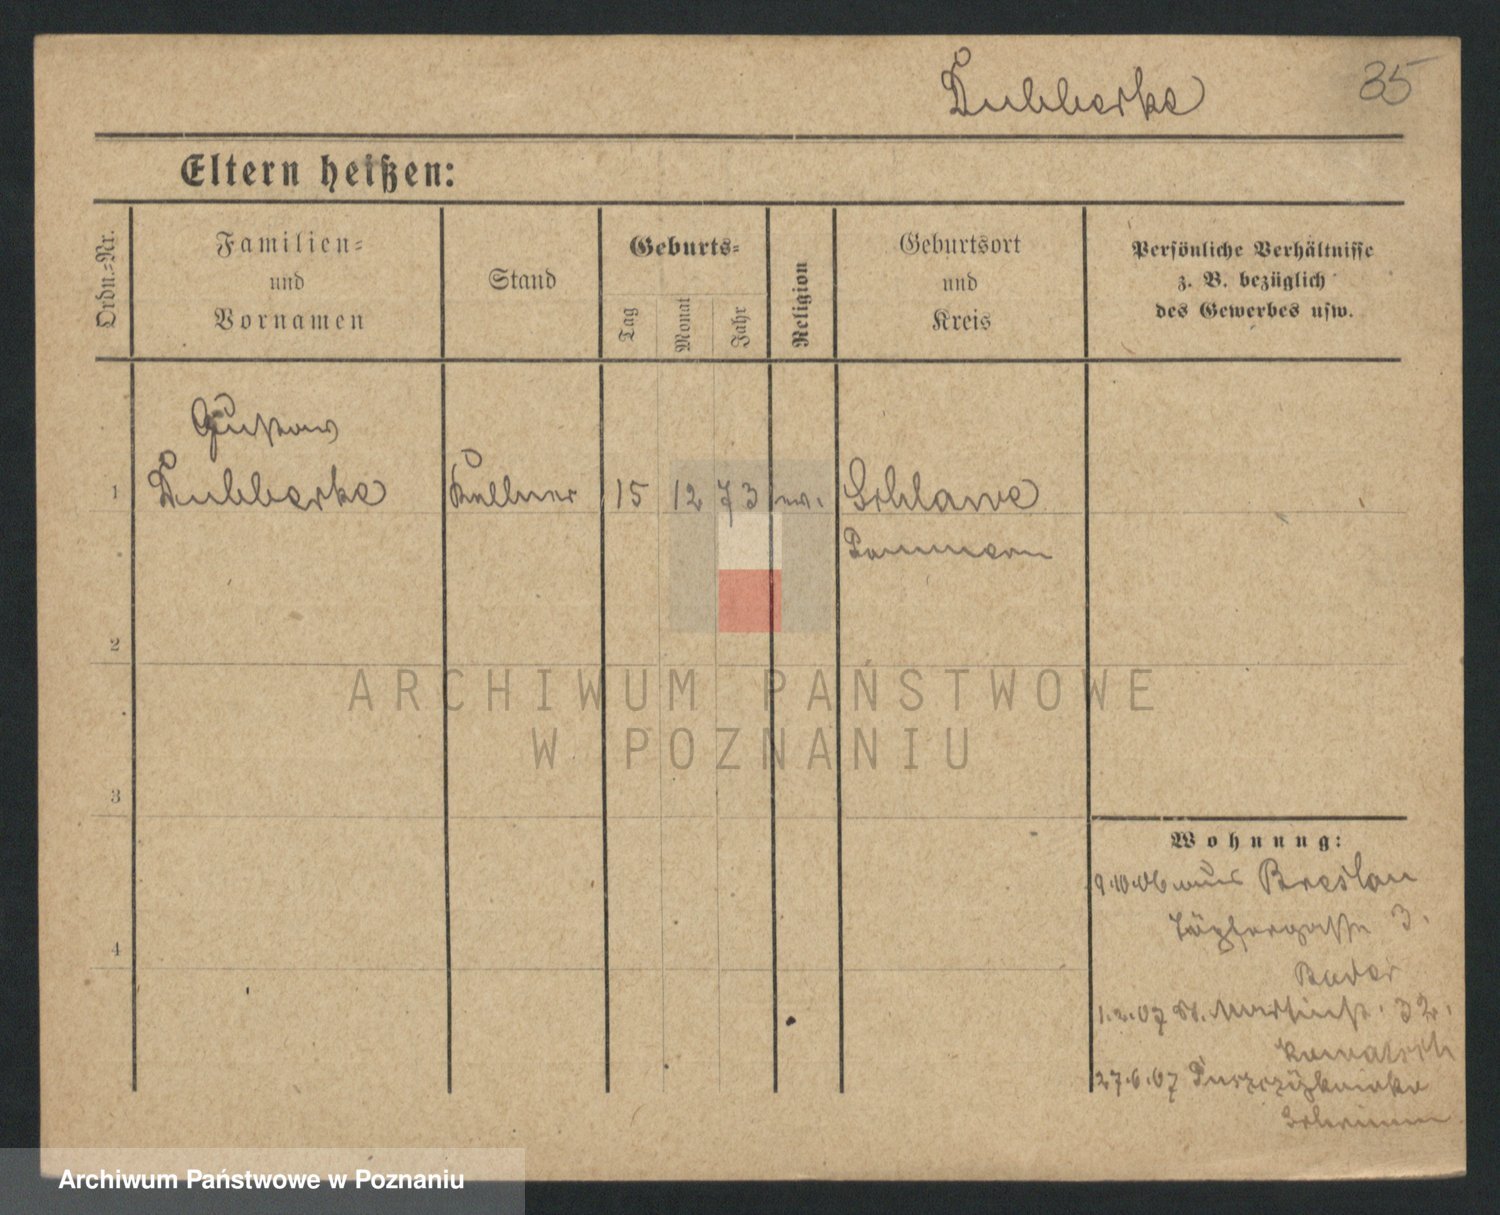 Dubberke 35
Eltern heißen:
Ordn.-Nr.
Familien-
und
Vornamen
Stand
Geburts-
Tag
Monat
Jahr
Religion
Geburtsort
und
Kreis
Persönliche Verhältnisse
z. B. bezüglich
des Gewerbes usw.
Gustav
1 Dubberke Kellner 15 12 73 ev. Schlawe
Pommern
2
3
4
Wohnung:
9.10.06 aus Breslau
Töpfergasse 3.
Bader
1.2.07 St. Martinstr. 32.
27.6.07
ARCHIWUM PAŃSTWOWE
W POZNANIU
Archiwum Państwowe w Poznaniu